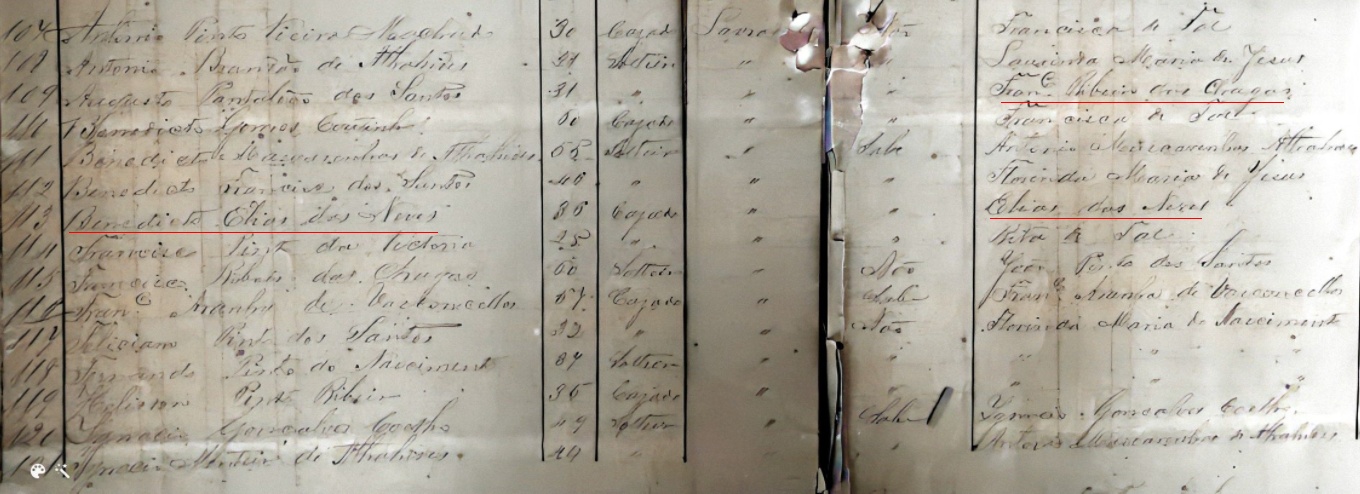 Antonio Pinto Vieira Machado 30 Cazado Não Francisca de Tal
108 Antonio Brandão de Athahides Solteiro " " Laurinda Maria de Jesus
109 Augusto Pantalião dos Santos 31 " " " Franc Ribeiro das Chagas
110 Benedicto Gomes Coutinho 60 Cazado " " Francisca de Tal
111 Benedicto Mascarenhas de Athahides 68 Solteiro " Sabe Antonio Mascarenhas Athahides
112 Benedicto Francisco dos Santos 46 " " " Florinda Maria de Jesus
113 Benedicto Elias das Neves 36 Cazado " " Elias das Neves
114 Francisco Pinto da Victoria 25 " " " Rita de Tal
115 Francisco das Chagas 60 Solteiro " Não João Pinto dos Santos
116 Franc Aranha de Vasconcellos 67 Cazado " Sabe Franc Aranha de Vasconcellos
117 Feliciano Pinto dos Santos 32 " " Não Florinda Maria do Nascimento
118 Fernando Pinto do Nascimento Solteiro " " " "
119 Pinto Ribeiro 36 Cazado " Sabe Ignacio Gonsalves Coelho
120 Ignacio Gonsalves Coelho 49 Solteiro " " Antonio Mascarenhas de Athahides
Ignacio Monteiro de Athahides 44 " "